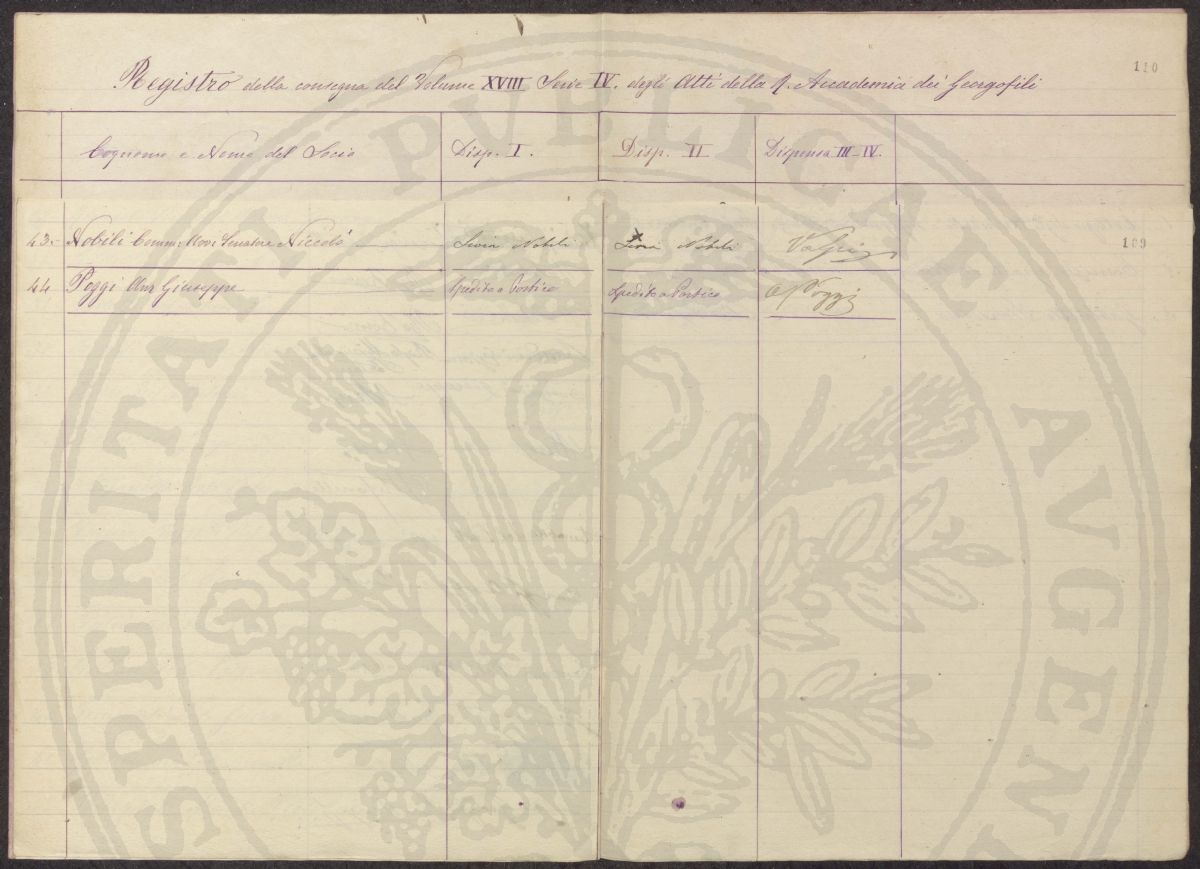 110
Registro della consegna del Volume XVIII Serie IV. degli Atti della R. Accademia dei Georgofili
Cognome e Nome del Socio Disp. I. Disp. II Dispensa III-IV.
109
43. Nobili Comm: Avv: Senatore Niccolò Nobili Nobili
44 Poggi Giuseppe Spedito a Portico Spedito a Portico Poggi
PROSPERITATI PUBLICAE AVGENDAE